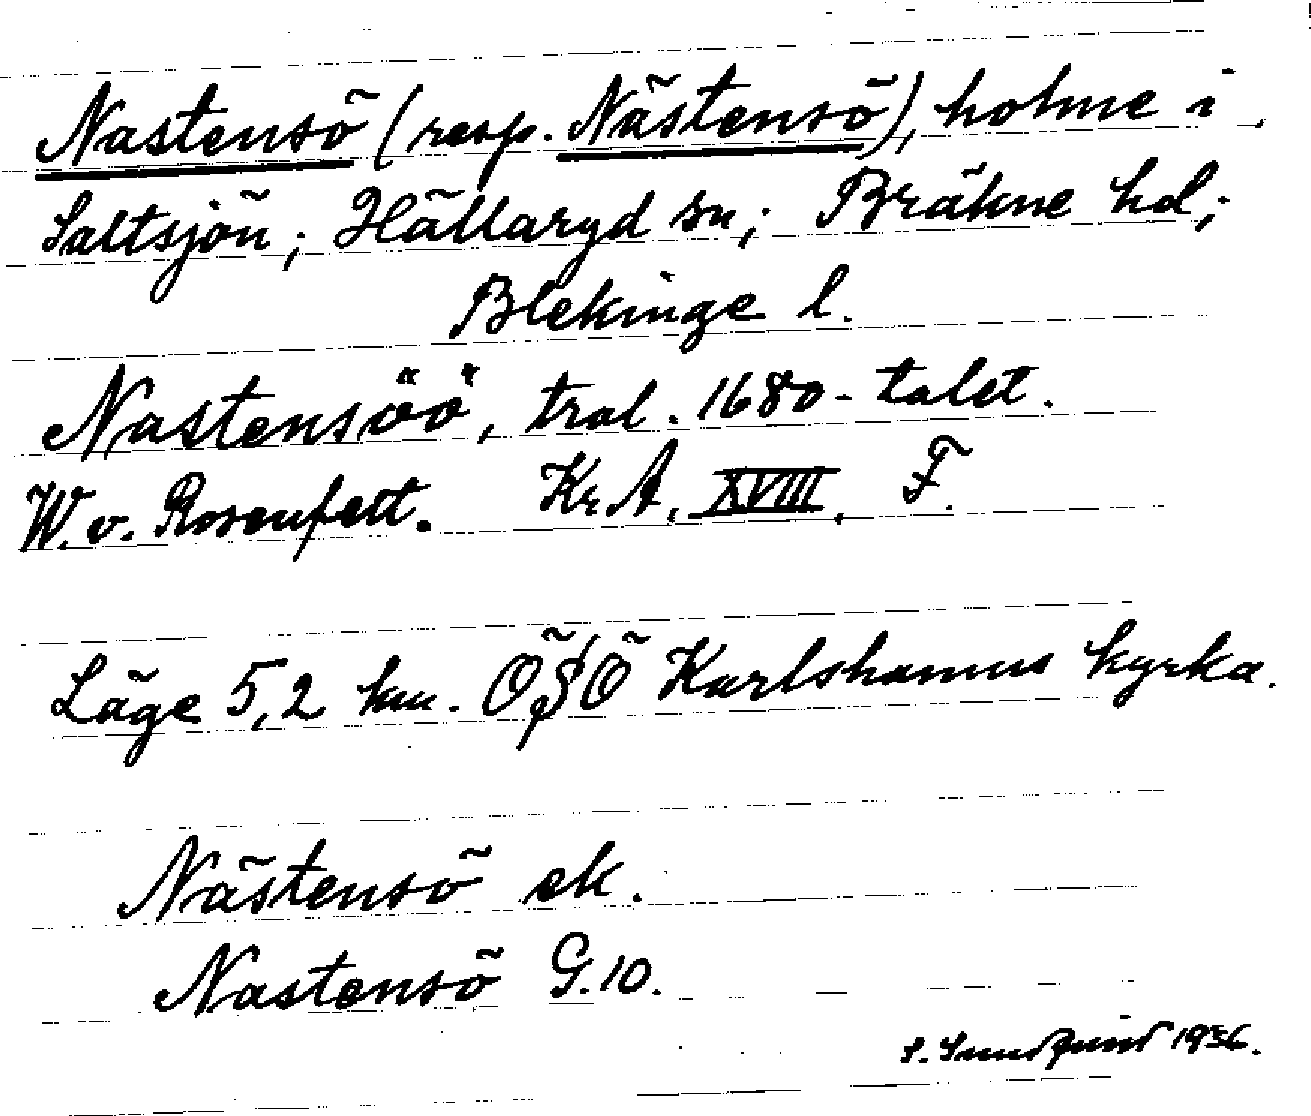 Nastensö (resp. Nästensö), holme i
Saltsjön; Hällaryd sn; Bräkne hd;
Blekinge l.
Nastensöö, trol. 1680-talet.
W. v. Rosenfelt. Kr. A, XVIII, F.
Läge 5,2 km. ÖSÖ Karlshamns kyrka.
Nästensö ek.
Nastensö G. 10.
S. 1936.